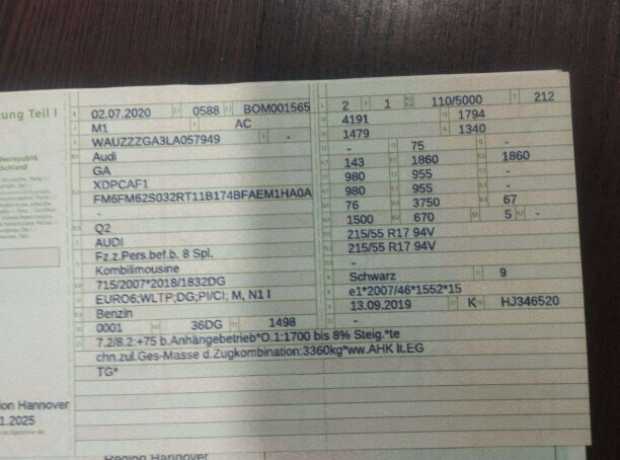 ung Teil I
02.07.2020 0588 BOM001565 2 1 110/5000 212
M1 AC 4191 1794
WAUZZZGA3LA057949 - 1479 1340
Audi - 75 -
GA 143 1860 1860
XDPCAF1 980 955 -
FM6FM62S032RT11B174BFAEM1HA0A 980 955 -
- 76 3750 67
Q2 1500 670 5 -
AUDI 215/55 R17 94V
Fz.z.Pers.bef.b. 8 Spl. 215/55 R17 94V
Kombilimousine -
715/2007*2018/1832DG Schwarz 9
EURO6;WLTP;DG;PI/CI; M, N1 I e1*2007/46*1552*15
Benzin 13.09.2019 K HJ346520
0001 36DG 1498 -
7.2/8.2:+75 b.Anhängebetrieb*O.1:1700 bis 8% Steig.*te
chn.zul.Ges-Masse d.Zugkombination:3360kg*ww.AHK lt.EG
TG*
ion Hannover
1.2025
Region Hannover